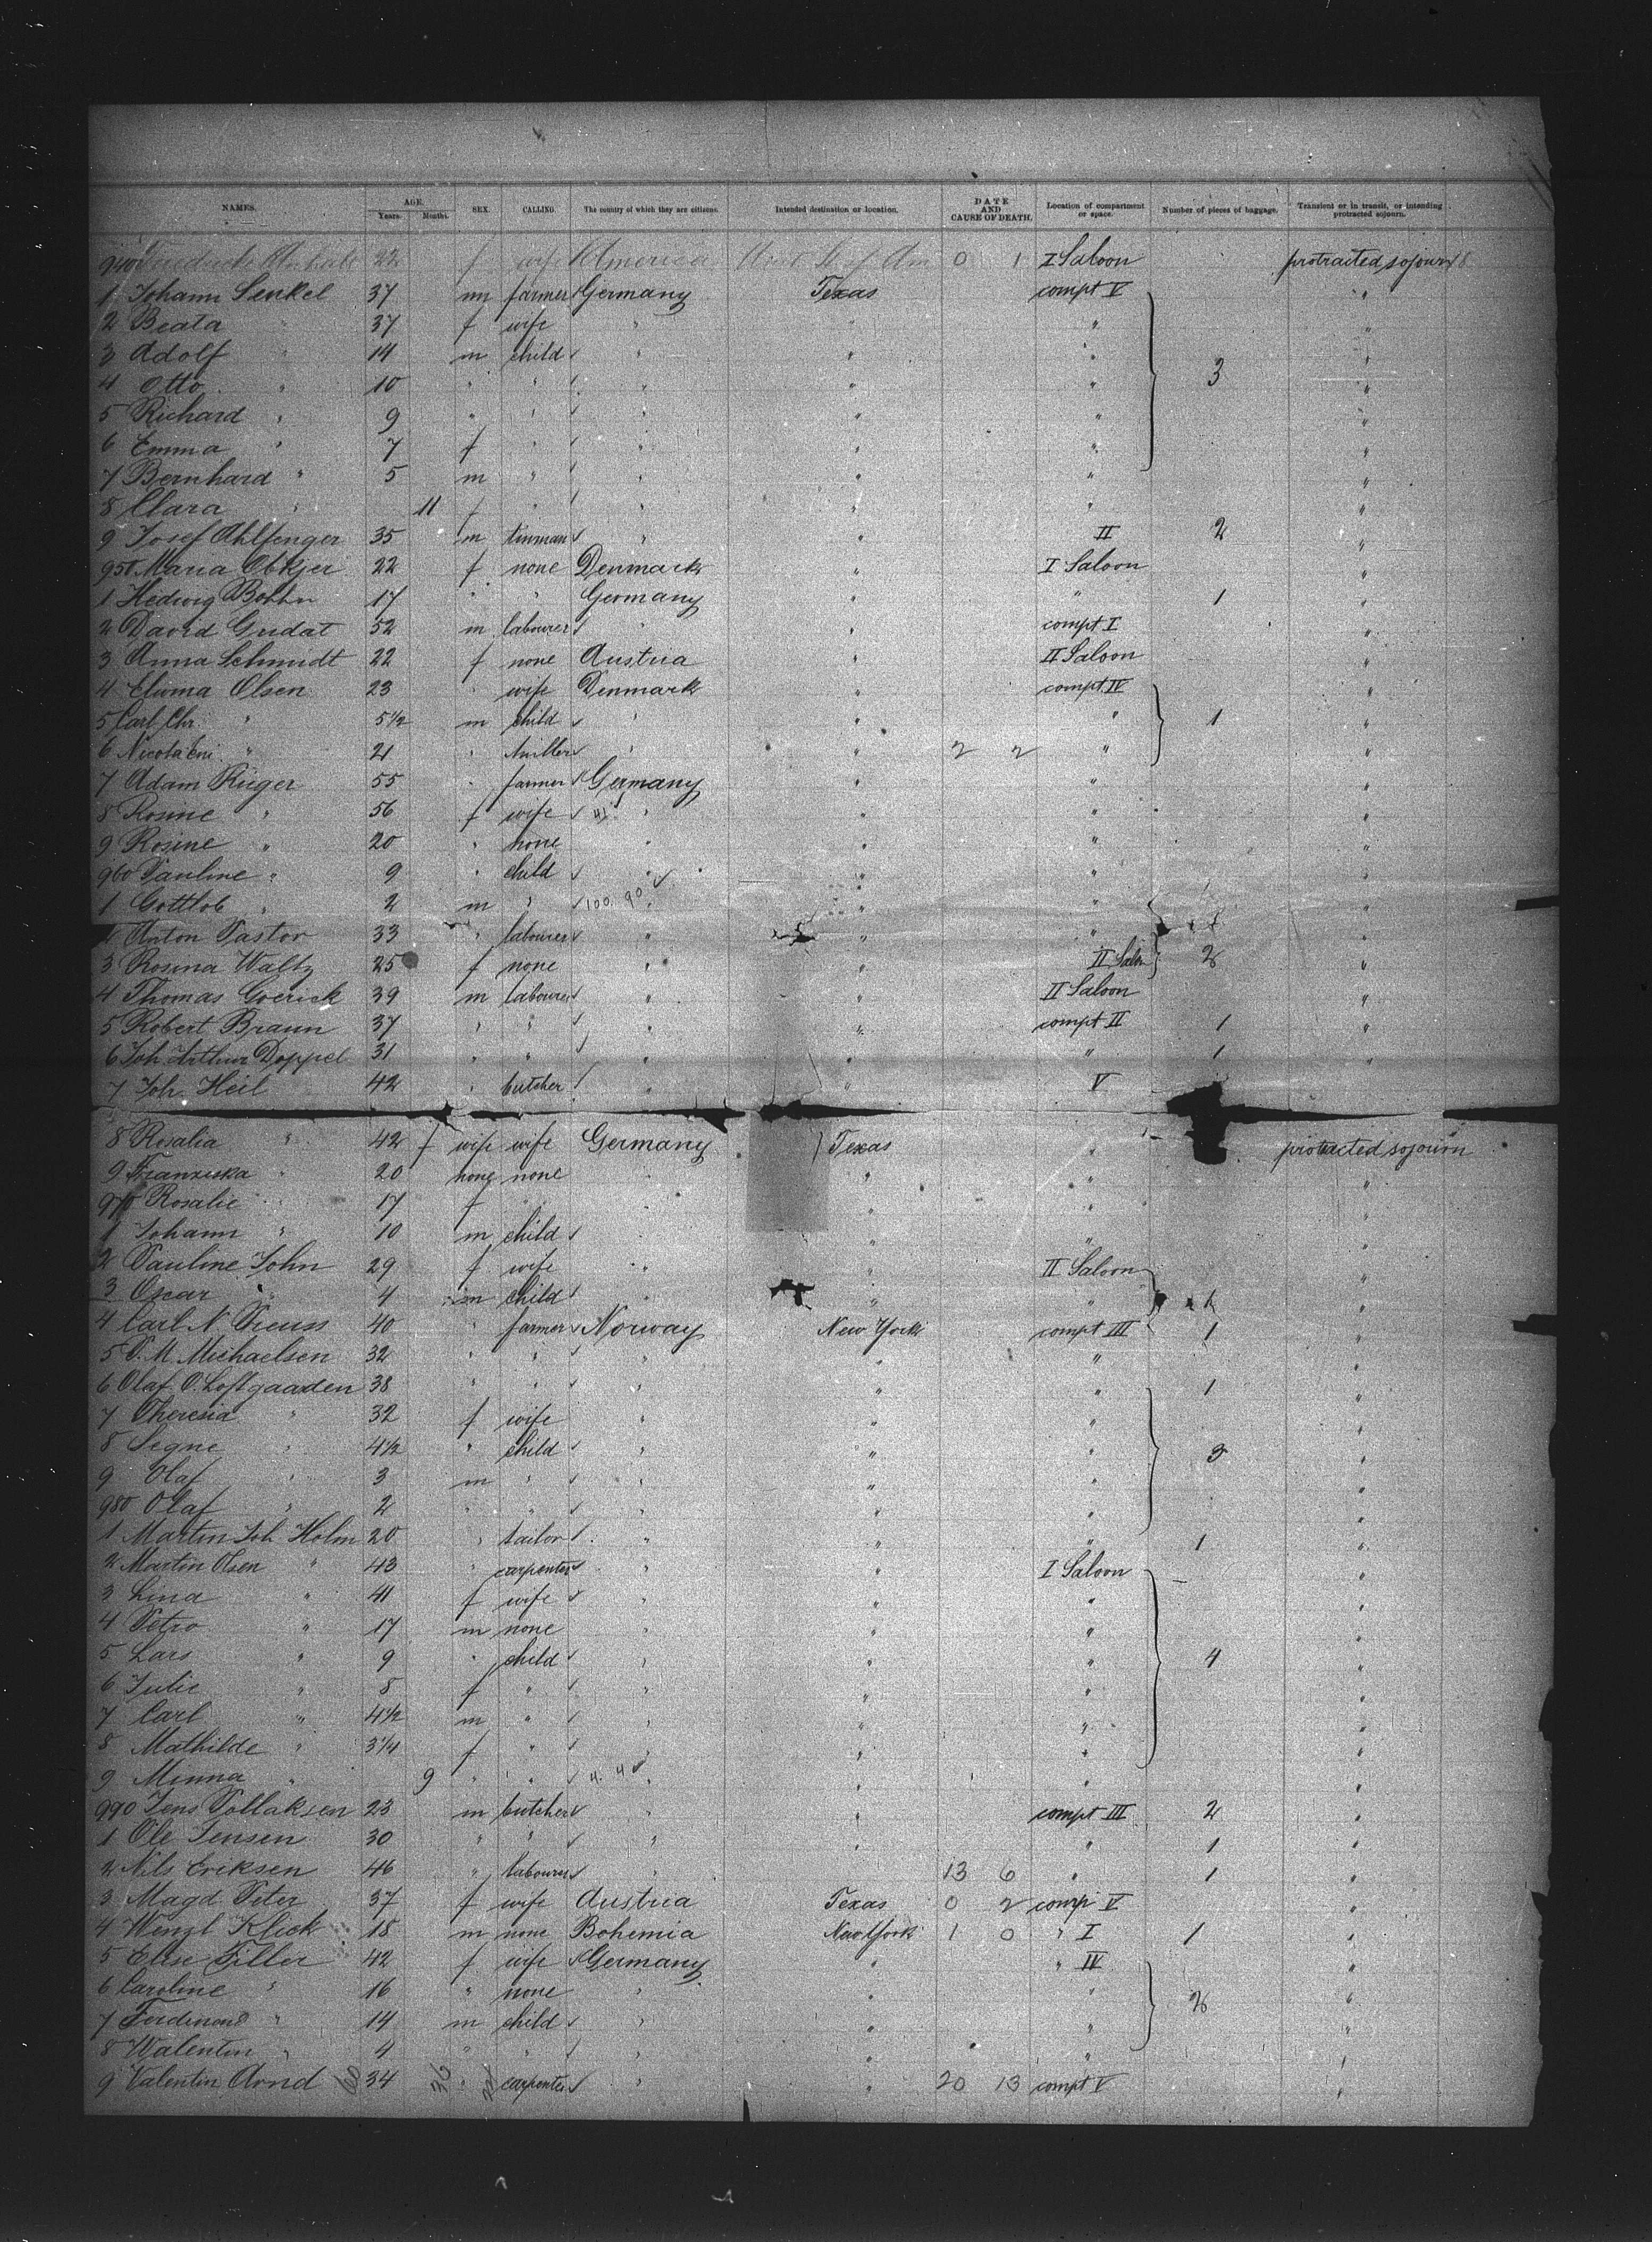 NAMES. AGE. Years. Months. SEX. CALLING. The country of which they are citizens. Intended destination or location. DATE AND CAUSE OF DEATH. Location of compartment or space. Number of pieces of baggage. Transient or in transit, or intending protracted sojourn.
940 22 f wife America 0 1 I Saloon protracted sojourn
1 Johann Senkel 37 m farmer Germany Texas compt V "
2 Beata " 37 f wife " " " "
3 Adolf " 14 m child " " " "
4 Otto " 10 " " " " " 3 "
5 Richard " 9 " " " " " "
6 Emma " 7 f " " " " "
7 Bernhard " 5 m " " " " "
8 Clara " 11 f " " " " "
9 Josef Ahlfenger 35 m tinman " " II 2 "
950 Maria Obkjer 22 f none Denmark " I Saloon "
1 Hedwig Bohn 17 " " Germany " " 1 "
2 David Gudat 52 m labourer " " compt I "
3 Anna Schmidt 22 f none Austria " II Saloon "
4 Elwma Olsen 23 " wife Denmark " compt IV "
5 Carl Chr. " 5 1/2 m child " " " 1 "
6 " 21 " miller " " 2 2 " "
7 Adam Rieger 55 " farmer Germany " " "
8 Rosine " 56 f wife " " " "
9 Rosine " 20 " none " " " "
960 Pauline " 9 " child " " " "
1 Gottlob " 2 m " 100 90 " " " "
2 Anton Pastor 33 " labourer " " " "
3 Rosina Waltz 25 f none " " II Saloon 2 "
4 Thomas Goerick 39 m labourer " " II Saloon "
5 Robert Braun 37 " " " " compt II 1 "
6 Joh Arthur Doppel 31 " " " " " 1 "
7 Joh. Heil 42 " butcher " " V
8 Rosalia " 42 f wife wife Germany Texas " protracted sojourn
9 Franziska " 20 none none " " " "
970 Rosalie " 17 f " " " " "
1 Johann " 10 m child " " " "
2 Pauline John 29 f wife " " II Saloon "
3 Oscar " 4 m child " " " 1 "
4 Carl N. Preuss 40 " farmer Norway New York compt III 1 "
5 O. M. Michaelsen 32 " " " " " "
6 Olaf O. Loftgaarden 38 " " " " " 1 "
7 Theresia " 32 f wife " " " "
8 Segne " 4 1/2 " child " " " 3 "
9 Olaf " 3 m " " " " "
980 Olaf " 2 " " " " " "
1 Martin Joh Holm 20 " tailor " " " 1 "
2 Martin Olsen " 43 " carpenter " " I Saloon - "
3 Lina " 41 f wife " " " "
4 Petro " 17 m none " " " "
5 Lars " 9 " child " " " 4 "
6 Julie " 8 f " " " " "
7 Carl " 4 1/2 m " " " " "
8 Mathilde " 3 1/4 f " " " " "
9 Minna " 9 " " 4. 4 " " " "
990 Jens Tollaksen 23 m butcher " " compt III 2 "
1 Ole Jensen 30 " " " " " 1 "
2 Nils Eriksen 46 " labourer " " 13 6 " 1 "
3 Magd. Peter 37 f wife Austria Texas 0 2 compt V "
4 Wenzl Klick 18 m none Bohemia New York 1 0 " I 1 "
5 Elise Filler 42 f wife Germany " " IV "
6 Caroline " 16 " none " " " 2 "
7 Ferdinand " 14 m child " " " "
8 Walentin " 4 " " " " " "
9 Valentin Arnd 34 " carpenter " " 20 13 compt V "